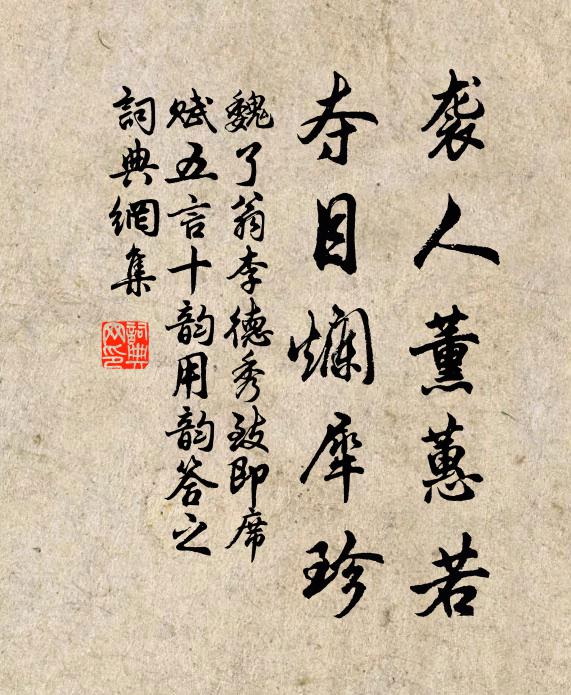 袭人薰蕙若
夺目烂犀珍
魏了翁李德秀致即席
赋五言十韵用韵答之
词典網集
詞典网印